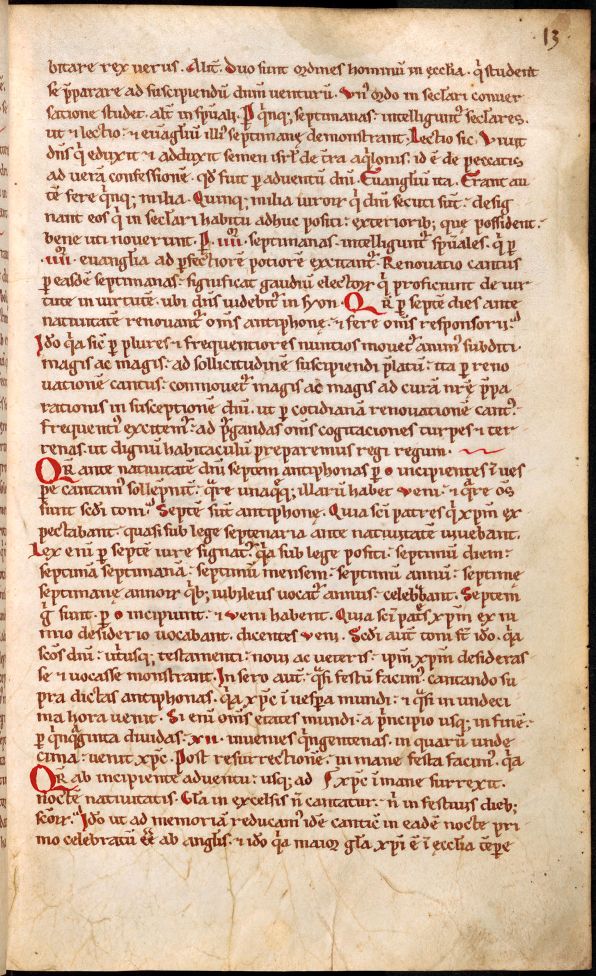 13
bitare rex verus. Alit̃. Duo sunt ordines hominũ in ęcclia. q̃ student
se p̃parare ad suscipiendũ dñm venturũ. Vn᷒ ordo in seclari conver
satione studet. alt̃ in spũali. P q̃nq; septimanas. intelligunt᷒ seclares.
ut & lectio. & evãgliũ illi᷒ septimanę demonstrant. Lectio sic. Vivit
dñs q̃ eduxit & adduxit semen isrl̃ de t̃ra aq̃lonis. id ẽ de peccatis
ad verã confessionẽ. qđ fuit p adventũ dñi. Euangliũ ita. Erant au
tẽ fere q̃nq; milia. Quinq; milia viror̃ q̃ dñm secuti sũt. desig
nant eos q̃ in seclari habitu adhuc positi. exteriorib; que possident.
bene uti noverunt. P .IIII. septimanas. intelligunt᷒ spũales. q̃ p
.IIII. evanglia ad p̃fectiorẽ potiorẽ excitant᷒. Renovatio cantus
p easdẽ septimanas. significat gaudiũ elector̃ q̃ proficiunt de vir
tute in virtutẽ. ubi dñs videbit᷒ in syon. QR̃ p septẽ dies ante
nativitatẽ renovant᷒ om̃s antiphonę. & fere om̃s responsorii.
Ido q̃a sic᷒ p plures & frequentiores nuntios movet᷒ anim᷒ subditi.
magis ac magis. ad sollicitudinẽ suscipiendi p̃latũ. ita p reno
vationẽ cantus. commovet᷒ magis ac magis ad curã nr̃ę p̃pa
rationis in susceptionẽ dñi. ut p cotidianã renovationẽ cant᷒.
frequenti᷒ excitem᷒. ad p̃gandas om̃s cogitationes turpes & ter
renas. ut dignũ habitaculũ preparemus regi regum.
QR̃ ante nativitatẽ dñi septem antiphonas p O incipientes ĩ ves
pe cantam᷒ sollẽpnit᷒. q̃re unaq̃q; illarũ habet veni. & q̃re om̃s
fiunt scđi toni. Septẽ sũt antiphonę. Quia sc̃i patres q̃ xp̃m ex
pectabant. quasi sub lege septenaria ante nativitatẽ vivebant.
Lex eni p septẽ iure signat᷒. q̃a sub lege positi. septimũ diem.
septimã septimanã. septimũ mensem. septimũ annũ. septime
septimanę annor̃ q̃b; iubileus vocat᷒ annus. celebrabant. Septem
g̃ sunt. p O incipiunt. & veni habent. Quia sc̃i pat̃s xp̃m ex ni
mio desiderio vocabant. dicentes veni. Scđi aut᷒ toni st̃ ido. q̃a
sc̃os dñi. utriusq; testamenti. novi ac veteris. ip̃m xp̃m desideras
se & vocasse monstrant. In sero aut᷒. q̃si festũ facim᷒. cantando su
pra dictas antiphonas. q̃a xp̃c ĩ vespera mundi. & q̃si in undeci
ma hora venit. Si eni om̃s etates mundi. a p̃ncipio usq; in finẽ.
p q̃nq̃genta dividas. XII. invenies q̃ngentenas. in quarũ unde
cima. venit xp̃c. Post resurrectionẽ. in mane festa facim᷒. q̃a
QR̃ ab incipiente adventu. usq; ad xp̃c ĩ mane surrexit.
noctẽ nativitatis. Gl̃a in excelsis ñ cantatur. ñ in festivis dieb;
sc̃or̃. Ido ut ad memoriã reducam᷒ idẽ cantic̃ in eadẽ nocte pri
mo celebratũ eẽ ab anglis. & ido q̃a maior gl̃a xp̃i ẽ ĩ ęcclia tẽpore